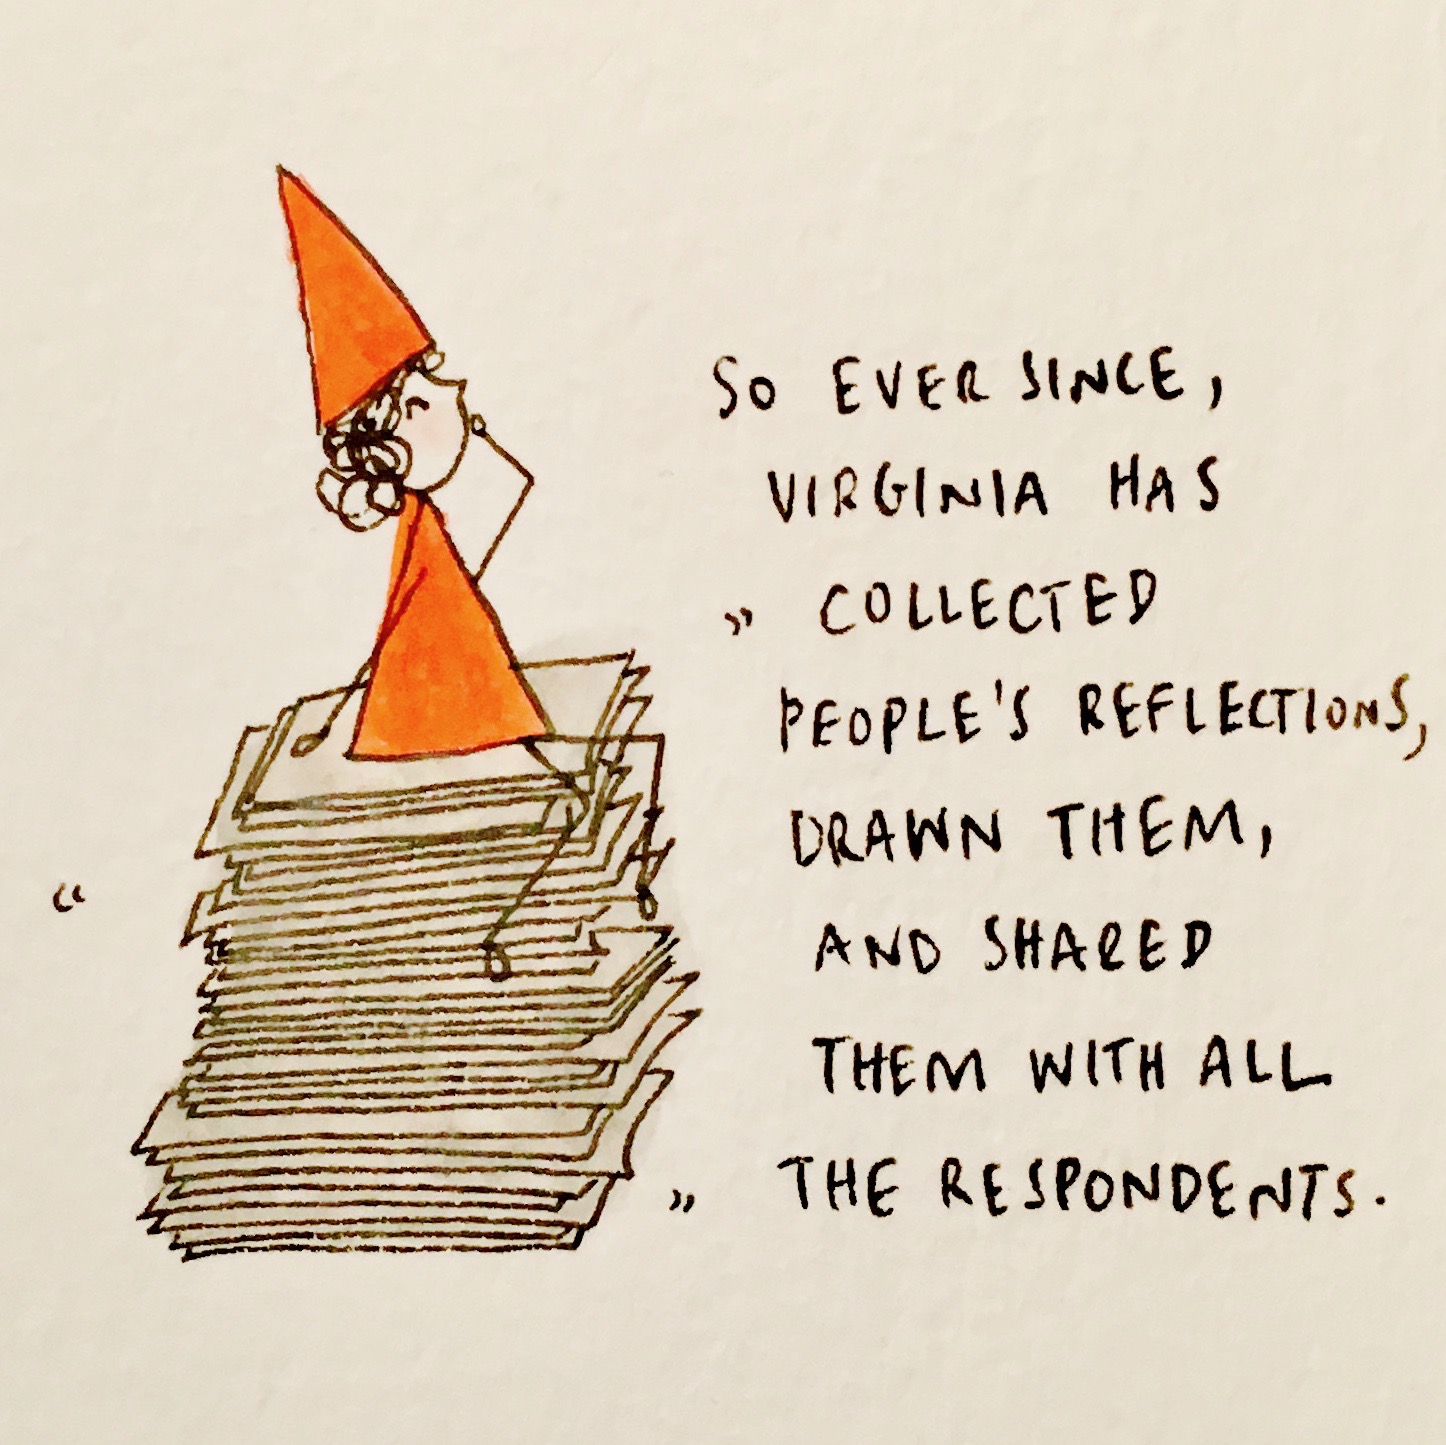 SO EVER SINCE,
VIRGINIA HAS
COLLECTED
PEOPLE'S REFLECTIONS,
DRAWN THEM,
AND SHARED
THEM WITH ALL
THE RESPONDENTS.